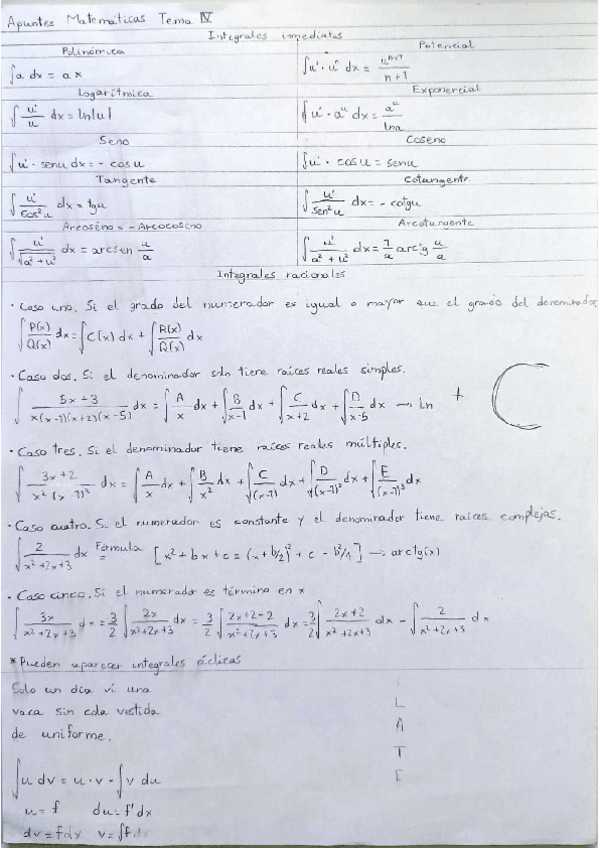 Apuntes Matemáticas Tema IV
Integrales inmediatas
Polinómica
Potencial
∫a dx = ax
∫u'·uⁿ dx = uⁿ⁺¹/n+1
Logarítmica
Exponencial
∫u'/u dx = ln|u|
∫u'·aᵘ dx = aᵘ/lna
Seno
Coseno
∫u'·senu dx = - cosu
∫u'·cosu = senu
Tangente
Cotangente
∫u'/cos²u dx = tgu
∫u'/sen²u dx = - cotgu
Arcoseno = -Arcocoseno
Arcotangente
∫u'/√a²+u² dx = arcsen u/a
∫u'/a²+u² dx = 1/a arctg u/a
Integrales racionales
· Caso uno. Si el grado del numerador es igual o mayor que el grado del denominador,
∫P(x)/Q(x) dx = ∫C(x) dx + ∫R(x)/Q(x) dx
· Caso dos. Si el denominador sólo tiene raíces reales simples.
∫5x+3/x(x-1)(x+2)(x-5) dx = ∫A/x dx + ∫B/x-1 dx + ∫C/x+2 dx + ∫D/x-5 dx → Ln + C
· Caso tres. Si el denominador tiene raíces reales múltiples.
∫3x+2/x²(x-1)³ dx = ∫A/x dx + ∫B/x² dx + ∫C/(x-1) dx + ∫D/(x-1)² dx + ∫E/(x-1)³ dx
· Caso cuatro. Si el numerador es constante y el denominador tiene raíces complejas.
∫2/x²+2x+3 dx Fórmula = [x²+bx+c = (x+b/2)² + c - b²/4] → arctg(x)
· Caso cinco. Si el numerador es término en x
∫3x/x²+2x+3 dx = 3/2 ∫2x/x²+2x+3 dx = 3/2 ∫2x+2-2/x²+2x+3 dx = 3/2 ∫2x+2/x²+2x+3 dx - ∫2/x²+2x+3 dx
* Pueden aparecer integrales cíclicas
Solo un día vi una
vaca sin cola vestida
de uniforme.
I
L
A
T
E
∫u dv = u·v - ∫v du
u = f du = f'dx
dv = fdx v = ∫f dx